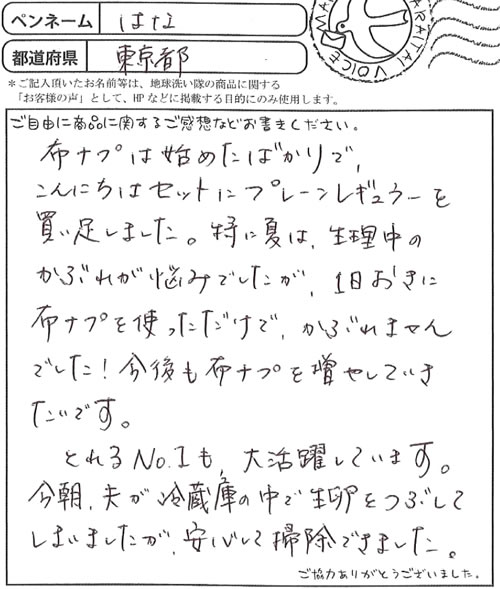 ペンネーム はな
都道府県 東京都
＊ご記入頂いたお名前等は、地球洗い隊の商品に関する
「お客様の声」として、HPなどに掲載する目的にのみ使用します。
VOICE
ARAITAI
MA
ご自由に商品に関するご感想などお書きください。
布ナプは始めたばかりで、
こんにちはセットにプレーンレギュラーを
買い足しました。特に夏は、生理中の
かぶれが悩みでしたが、1日おきに
布ナプを使っただけで、かぶれません
でした!今後も布ナプを増やしていき
たいです。
とれるNo.1も、大活躍しています。
今朝、夫が冷蔵庫の中で生卵をつぶして
しまいましたが、安心して掃除できました。
ご協力ありがとうございました。